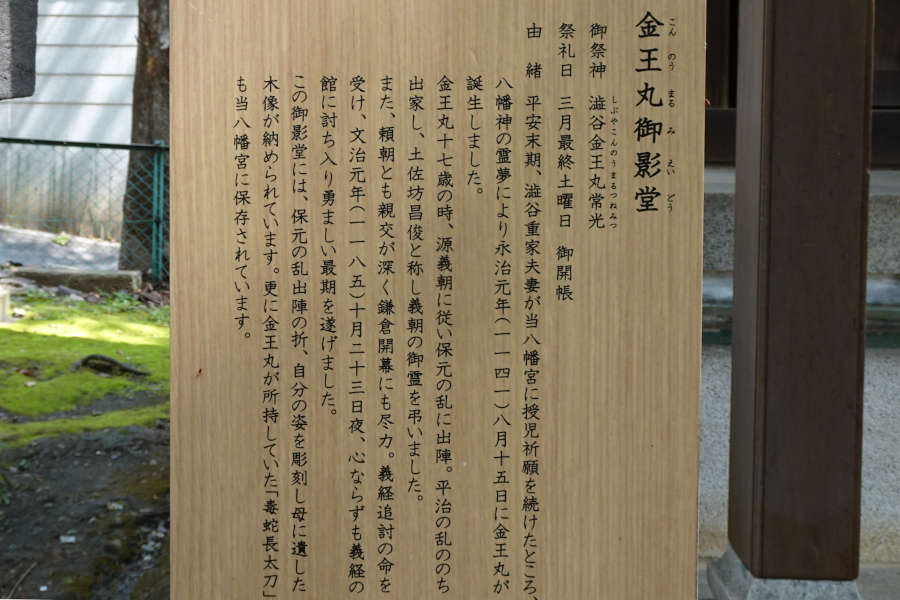 金王丸御影堂
こんのうまるみえいどう
御祭神　澁谷金王丸常光
しぶやこんのうまるつねみつ
祭礼日　三月最終土曜日　御開帳
由　緒　平安末期、澁谷重家夫妻が当八幡宮に授児祈願を続けたところ、
八幡神の霊夢により永治元年(一一四一)八月十五日に金王丸が
誕生しました。
金王丸十七歳の時、源義朝に従い保元の乱に出陣。平治の乱ののち
出家し、土佐坊昌俊と称し義朝の御霊を弔いました。
また、頼朝とも親交が深く鎌倉開幕にも尽力。義経追討の命を
受け、文治元年(一一八五)十月二十三日夜、心ならずも義経の
館に討ち入り勇ましい最期を遂げました。
この御影堂には、保元の乱出陣の折、自分の姿を彫刻し母に遺した
木像が納められています。更に金王丸が所持していた「毒蛇長太刀」
も当八幡宮に保存されています。